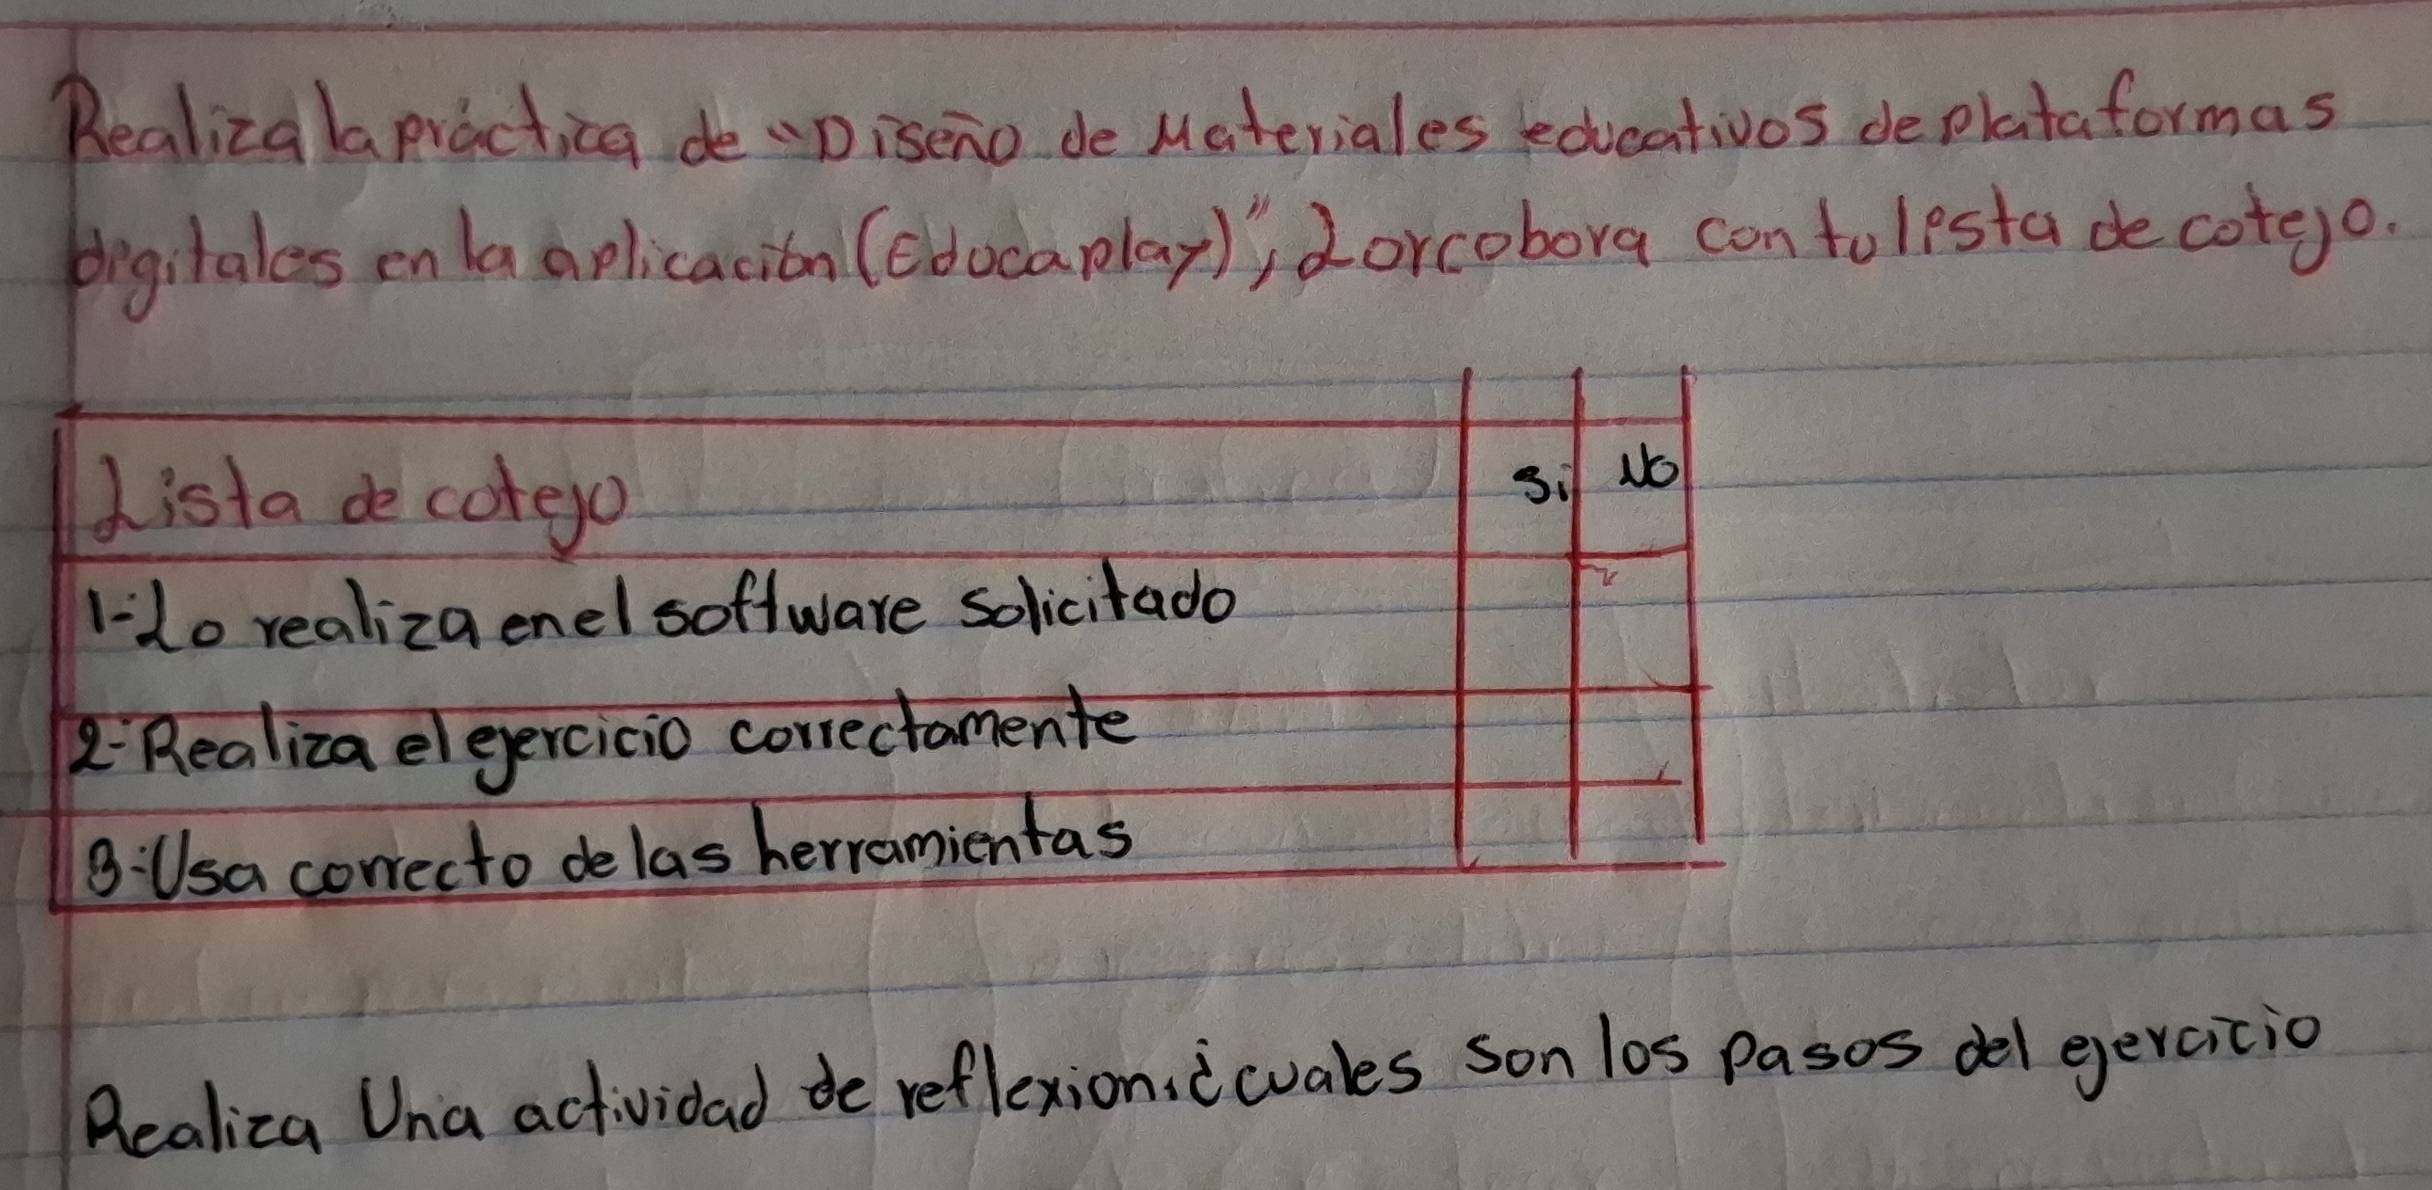 Realiza la práctica de "Diseño de Materiales educativos de plataformas
digitales en la aplicación (Educaplay)", Lorcobora con tu lista de cotejo.
Lista de cotejo Si No
1-Lo realiza en el software solicitado
2-Realiza el ejercicio correctamente
3-Usa correcto de las herramientas
Realiza Una actividad de reflexion. ¿cuales son los pasos del ejercicio